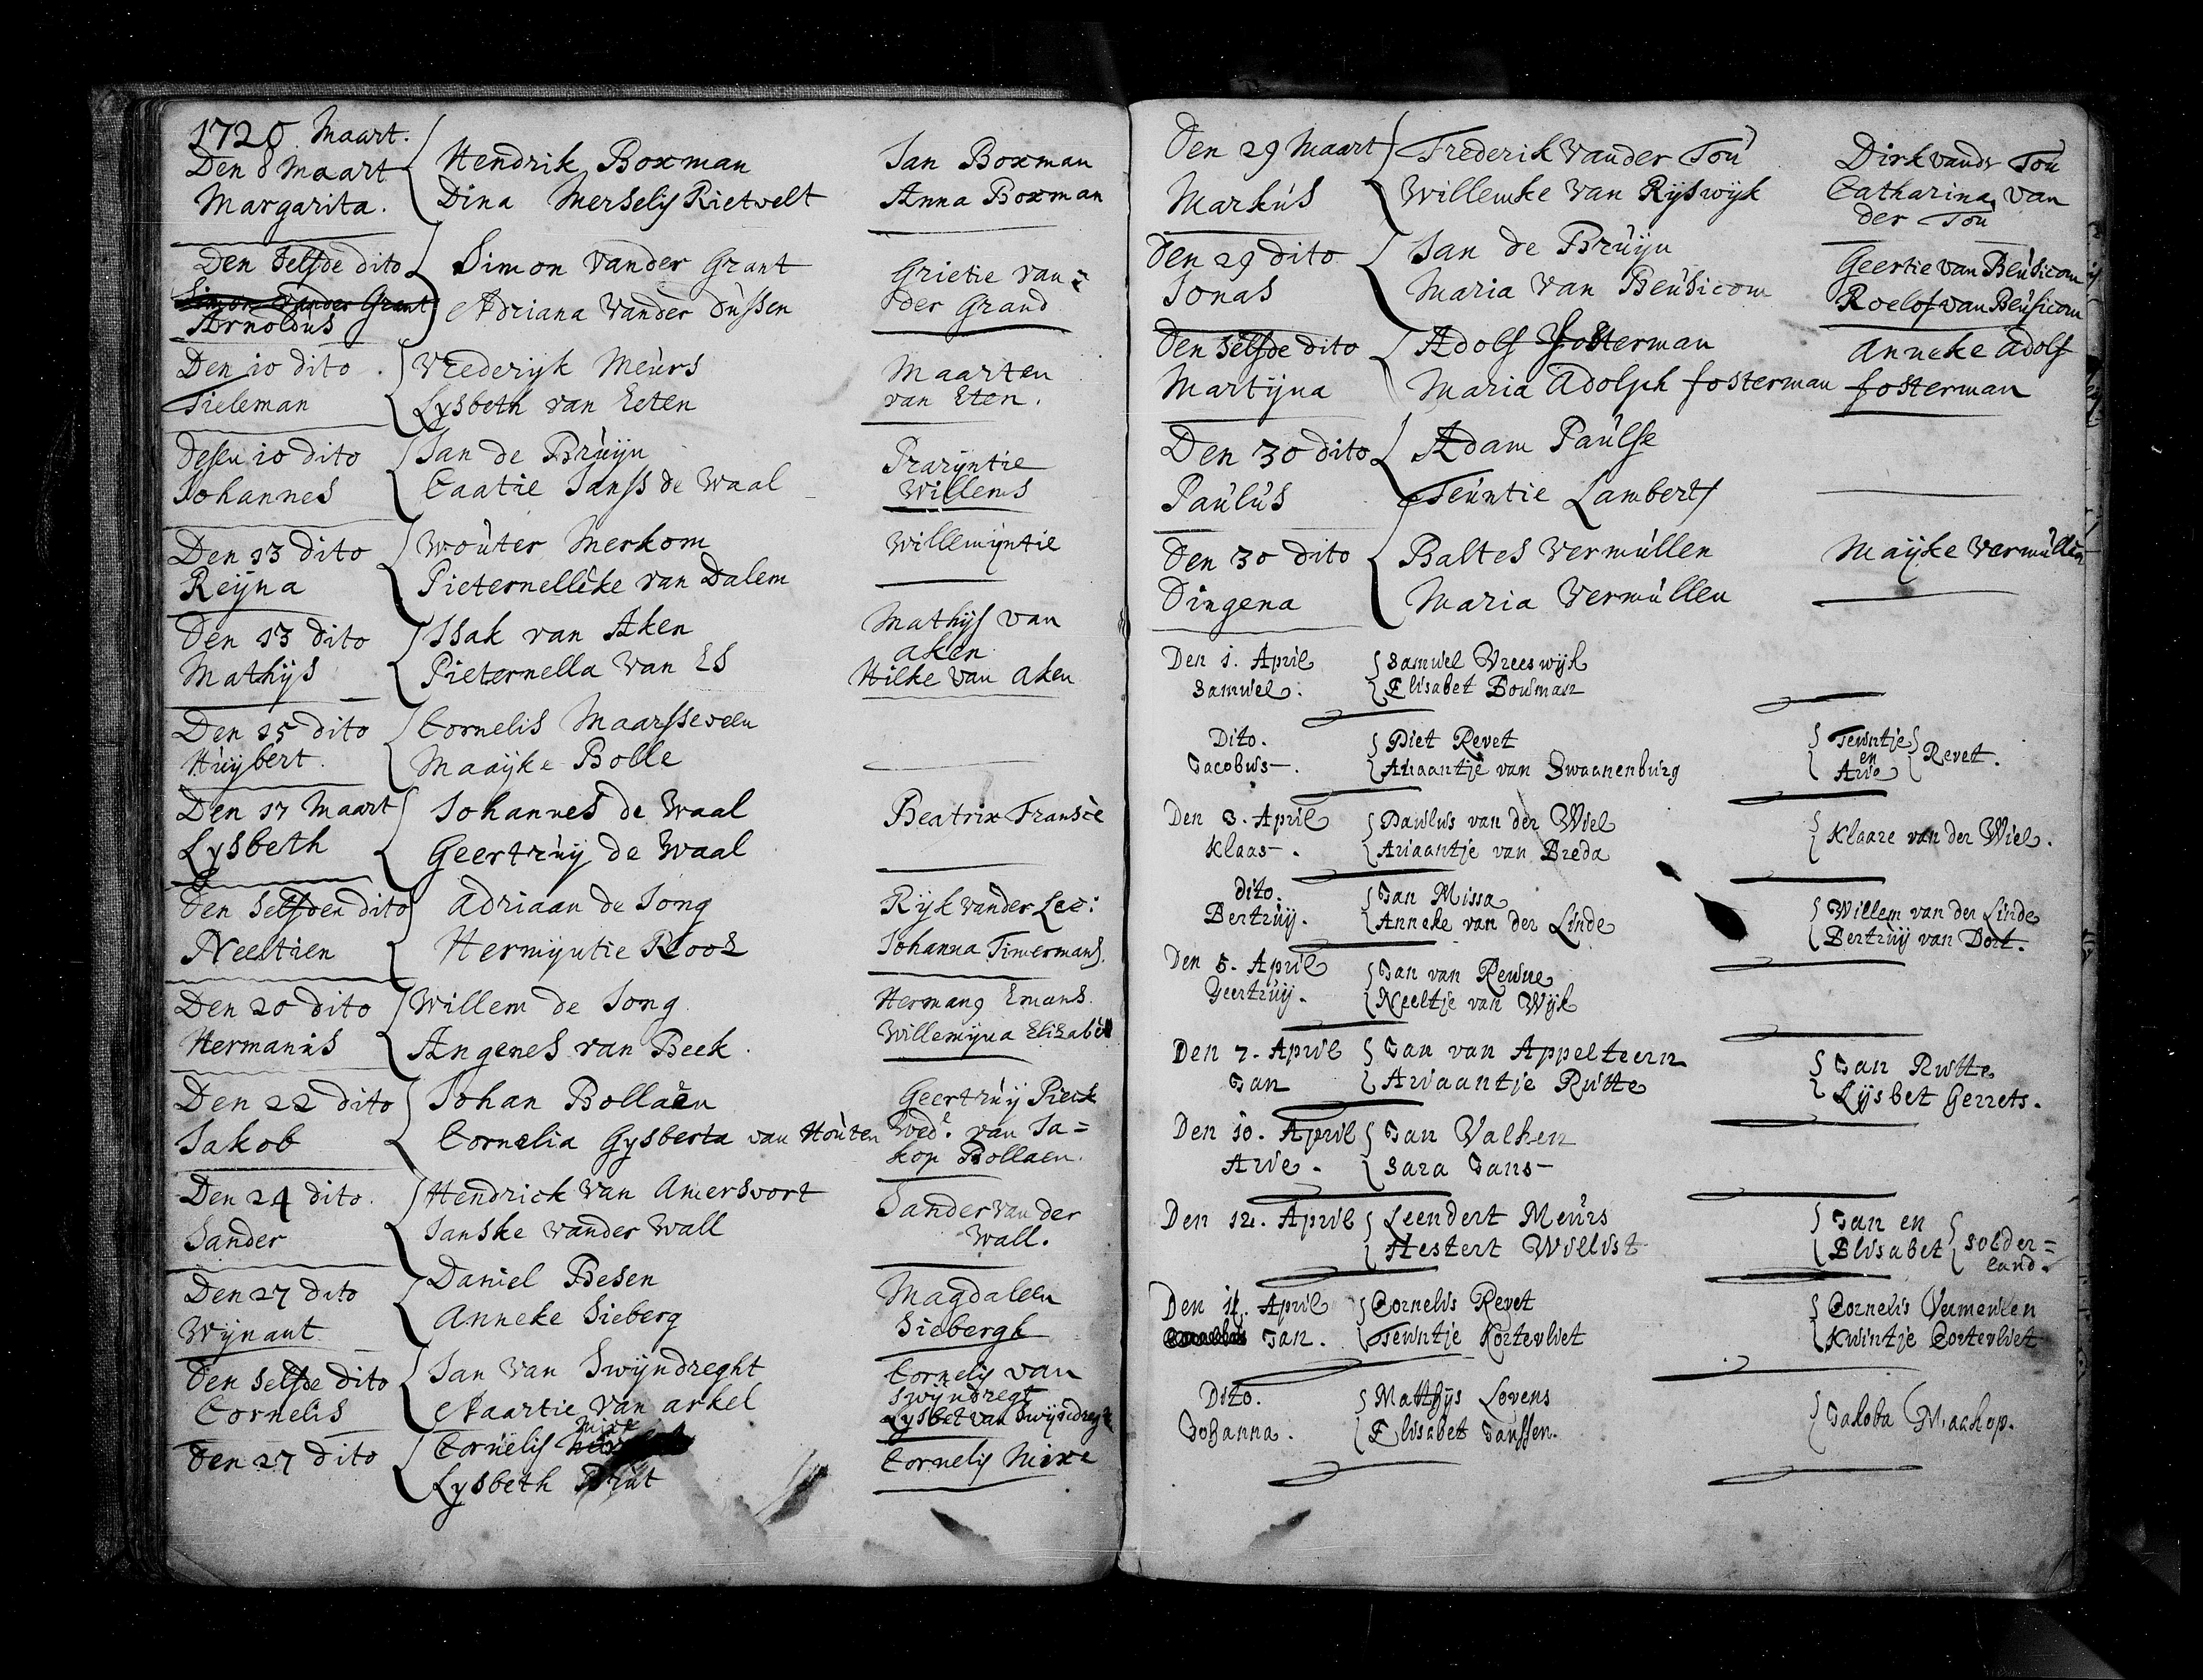 1720 Maart.
Den 8 Maart Hendrik Boxman Jan Boxman
Margarita. Dina Merselis Rietvelt Anna Boxman
Den selfde dito Simon vander Grant Grietie van=
Simon vander Grant
Arnoldus Adriana vander Dussen der Grand
Den 10 dito Vrederyk Meurs Maarten
Tieleman Lysbeth van Eeten van Eten.
Desen 10 dito Jan de Bruyn
Johannes Caatie Janss de Waal Willems
Den 13 dito Wouter Merkom Willemyntie
Reyna Pieternelleke van Dalem
Den 13 dito Isak van Aken Mathys van
aken
Mathys Pieternella van Es Hilke van aken
Den 15 dito Cornelis Maarsseveen
Huybert. Maayke Bolle
Den 17 Maart Johannes de Waal Beatrix Transee
Lysbeth Geertruy de Waal
Den selfden dito Adriaan de Jong Ryk vander Lee:
Neeltien Hermyntie Roos Johanna Timermans.
Den 20 dito Willem de Jong Hermans Emans
Hermanis Angenes van Beek. Willemyna
Den 22 dito Johan Bollaen Geertruy Pieck
Jakob Cornelia Gysberta van Houten Wed. van Ja=
kop Bollaen.
Den 24 dito. Hendrick van Amersvort Sander van der
Sander Janske vander Wall Wall.
Den 27 dito Daniel Besen Magdaleen
Wynant Anneke Sieberg Siebergh
Den selfde dito Jan van Swyndreght Cornelis van
Swyndregt
Cornelis Maartie van arkel Lysbet van Swyndregt
Nixe
Den 27 dito Cornelis Cornelis Nixe
Lysbeth
Den 29 Maart Frederik vander Tou Dirk vander Tou
Markus Willemke van Ryswyk Catharina van
der Tou
Den 29 dito Jan de Bruyn Geertie van Beusicom
Jonas Maria van Beusicom Roelof van Beusicom
Den selfde dito Adolf fosterman Anneke Adolf
Martyna Maria Adolph fosterman fosterman
Den 30 dito Adam Paulse
Paulus Teuntie Lamberts
Den 30 dito Baltes Vermullen Mayke Vermullen
Dingena Maria Vermullen
Den 1. April Samuel Vreeswyk
Samuel. Elisabet Bouman
Dito. Piet Revet Teuntje
en Revet.
Jacobus. Ariaantje van Swaanenburg Arie
Den 3. April Paulus van der Wiel Klaare van der Wiel.
Klaas. Ariaantje van Breda
dito. Jan Missa Willem van der Linde
Bertruy. Anneke van der Linde Bertruy van Dort.
Den 5. April Jan van
Geertruy. Neeltje van Wyk
Den 7. April Jan van Appelteern Jan Rutte
Jan Ariaantje Rutte Lysbet Gerrets.
Den 10. April Jan Valken
Arie. Sara Jans
Den 12. April Leendert Meurs Jan en
Hestert Willist Elisabet Solder=
land.
Den 14. April Cornelis Revet Cornelis Vermeulen
Jan. Teuntje Kortevliet Kwintje Cortevliet
Dito. Matthys Lovens Jakoba Maakop.
Johanna. Elisabet Janssen.